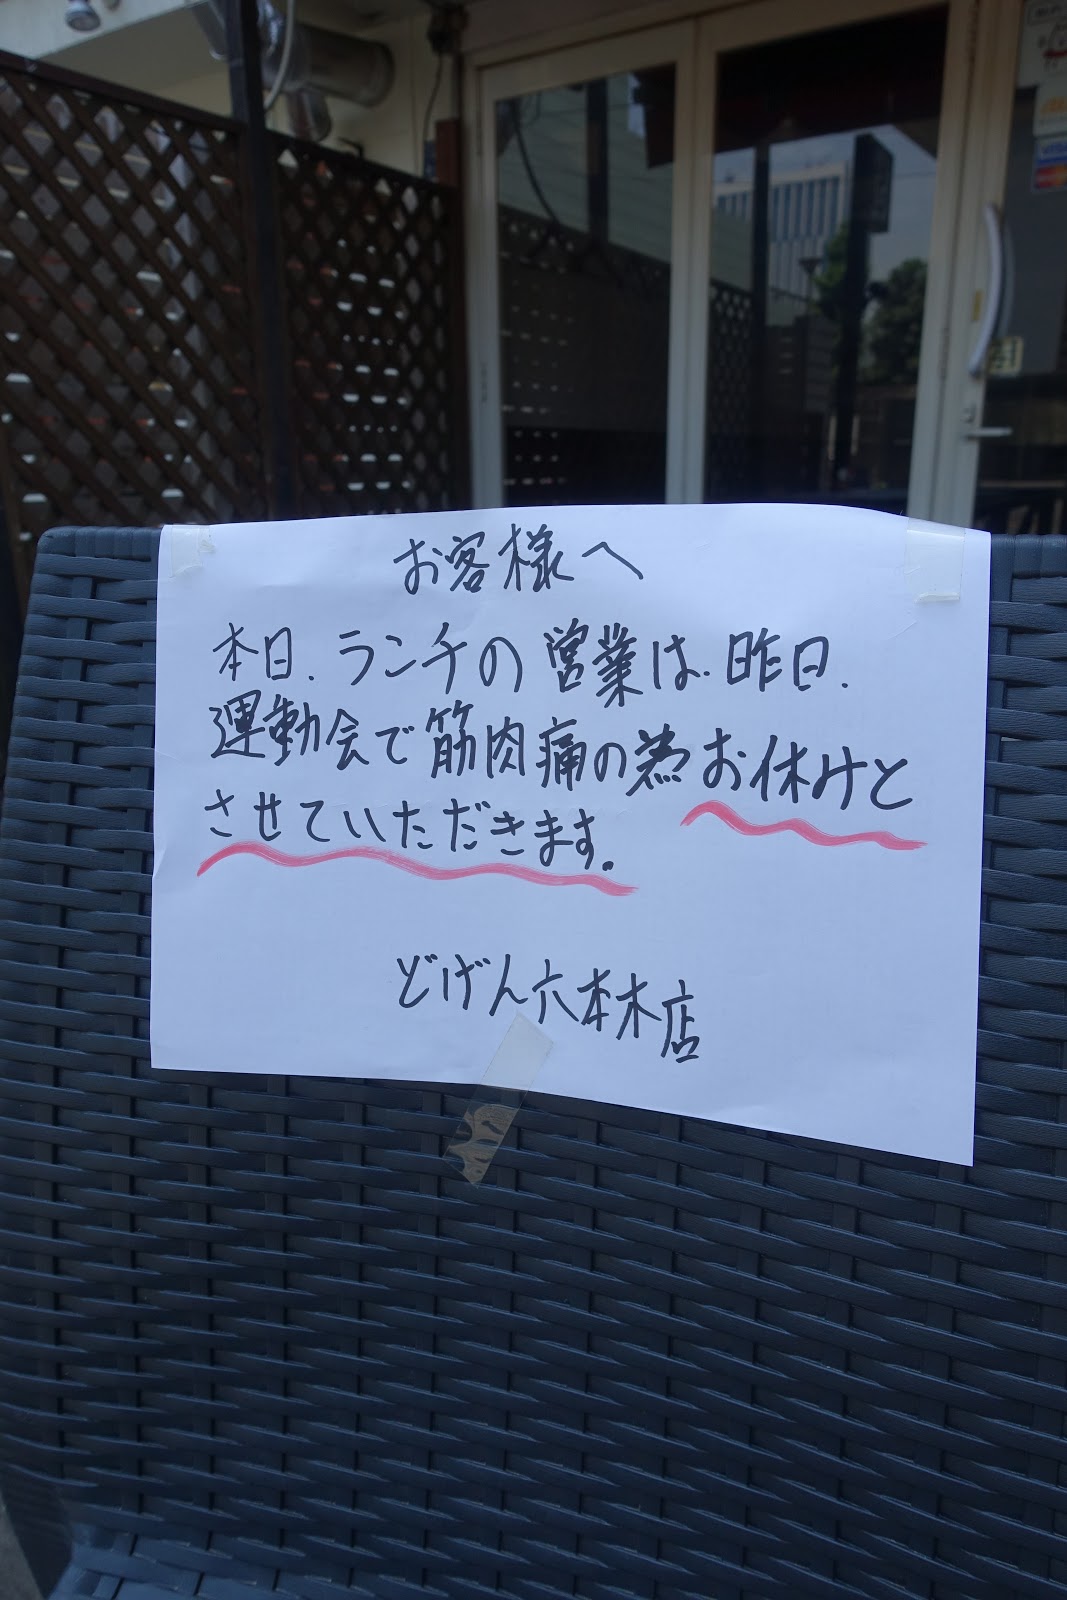 お客様へ
本日、ランチの営業は、昨日、
運動会で筋肉痛の為お休みと
させていただきます。
どげん六本木店
VISA